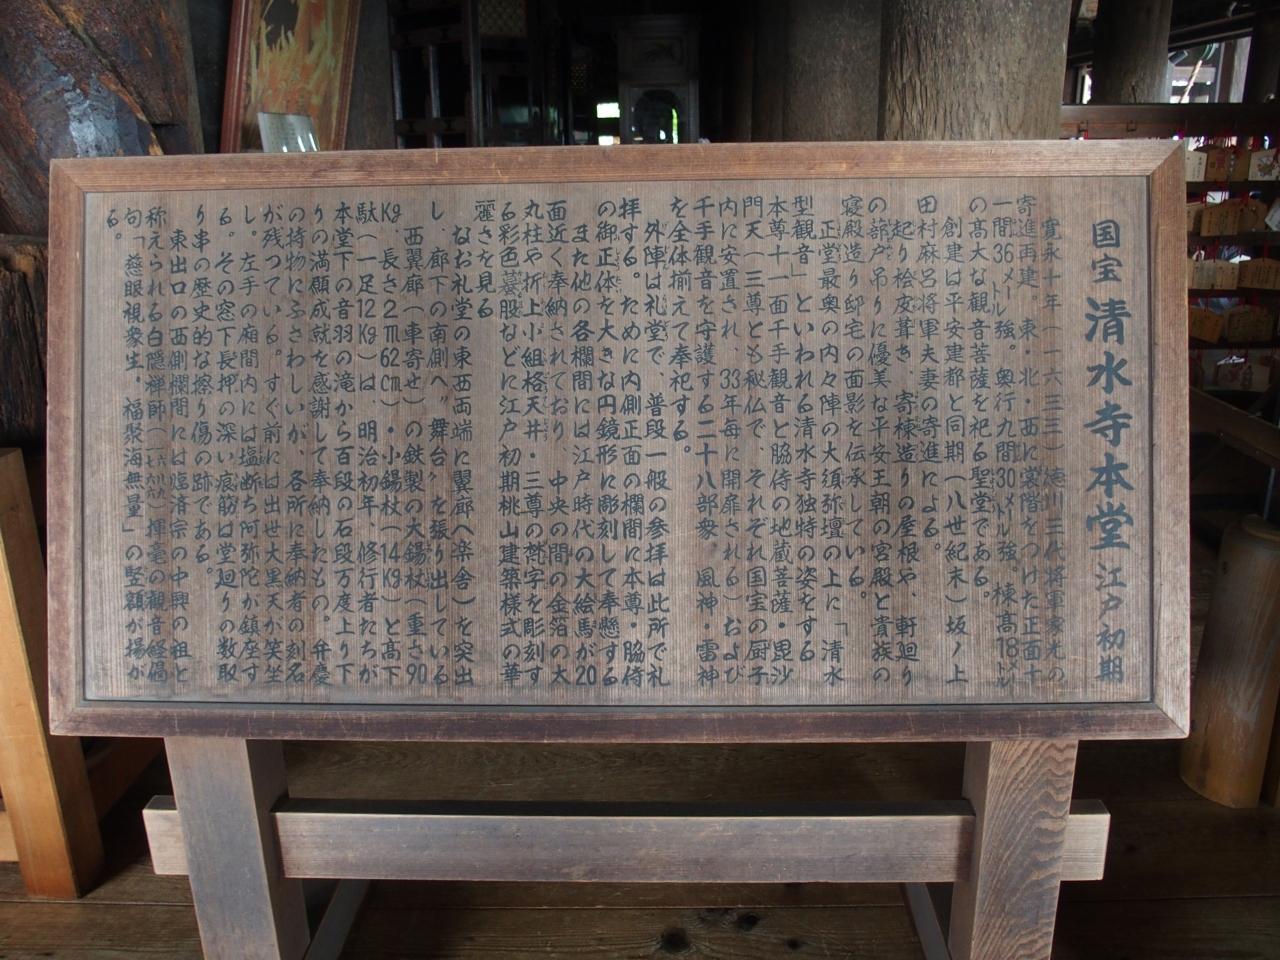 国宝 清水寺本堂 江戸初期
寛永十年(一六三三)徳川三代将軍家光の
寄進再建。東・北・西に裳階をつけた正面十
一間36メートル強。奥行九間30メートル強。棟高18メートル
の高大な観音菩薩を祀る聖堂である。
創建は平安建都と同期(八世紀末)坂ノ上
田村麻呂将軍夫妻の寄進による。
起り桧皮葺き、寄棟造りの屋根や、軒廻り
の蔀戸吊りに優美な平安王朝の宮殿と貴族の
寝殿造り邸宅の面影を伝承している。
正堂最奥の内々陣の大須弥壇の上に「清水
型観音」といわれる清水寺独特の姿をする
本尊十一面千手観音と脇侍の地蔵菩薩・毘沙
門天(三尊とも秘仏で、それぞれ国宝の厨子
内に安置され、33年毎に開扉される)および
千手観音を守護する二十八部衆。風神・雷神
を全体揃えて奉祀する。
外陣は礼堂で、普段一般の参拝は此所で礼
拝する。ために内側正面の欄間に本尊・脇侍
の御正体を大きな円鏡形に彫刻して奉懸する
また他の各欄間には江戸時代の大絵馬が20
面近く奉納されており、中央の間の金箔の大
丸柱や折上小組格天井・三尊の梵字を彫刻す
る彩色蟇股などに江戸初期桃山建築様式の華
麗さを見る
なお礼堂の東西両端に翼廊(楽舎)を突出
し、廊下の南側へ“舞台”を張り出している
西翼廊(車寄せ)の鉄製の大錫杖(重さ90
Kg 長さ2m62cm)・小錫杖(14Kg)と高下
駄(一足12Kg)は、明治初年、修行者たちが
本堂下の音羽の滝から百段の石段万度上り下
りの満願成就を感謝して奉納したもの。弁慶
の持物にふさわしいが、各所に奉納者の刻名
が残っている。すぐ前には出世大黒天が笑坐
し。左手の廂間内には塩断ち阿弥陀が鎮座す
る。その窓下長押の深い痕筋は堂廻りの数取
り串の歴史的な擦り傷の跡である。
東出口の西側欄間には臨済宗の中興の祖と
称えられる白隠禅師揮毫の観音経偈
句「慈眼視衆生・福聚海無量」の竪額が揚が
る。